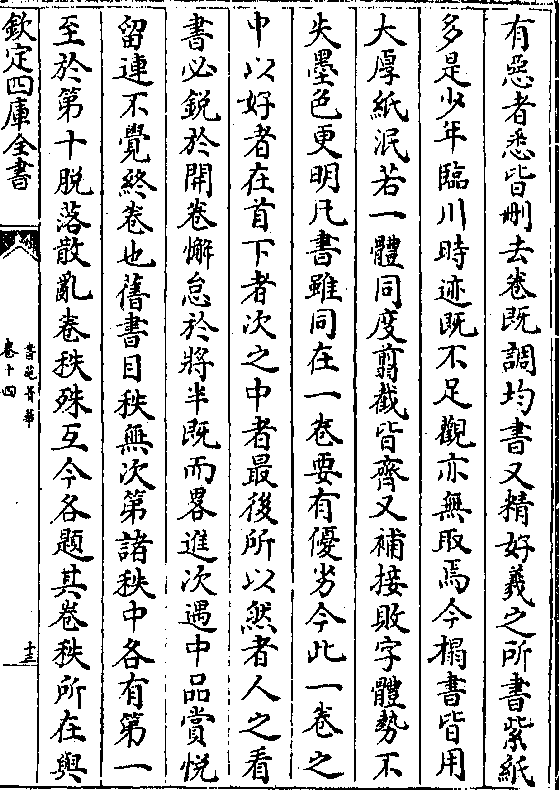 有惡者悉皆刪去卷既調均書又精好羲之所書紫紙
多是少年臨川時迹既不足觀亦無取焉今搨書皆用
大厚紙泯若一體同度剪截皆齊又補接敗字體勢不
失墨色更明凡書雖同在一卷要有優劣今此一卷之
中以好者在首下者次之中者最後所以然者人之看
書必銳於開卷懈怠於將半既而畧進次遇中品賞悅
留連不覺終卷也舊書目秩無次第諸秩中各有第一
至於第十脫落散亂卷秩殊互今各題其卷秩所在與
欽定四庫全書
書苑菁華
卷十四
十三